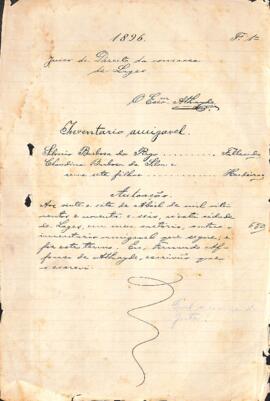 1896. Fl. 1
Juizo de Direito da comarca
de Lages
O Escrm Athayde
Inventario amigavel.
Barbosa do Rego Fallecido
Claudina Barbosa da Silva e
seus sete filhos Herdeiros
Autoação.
Aos vinte e sete de Abril de mil oito
centos e noventa e seis, n'esta cidade
de Lages, em meu cartorio, autuo o
inventario amigavel que segue; e
fiz este termo. Eu, Fernando Af
fonso de Athayde, escrivão que
escrevi.